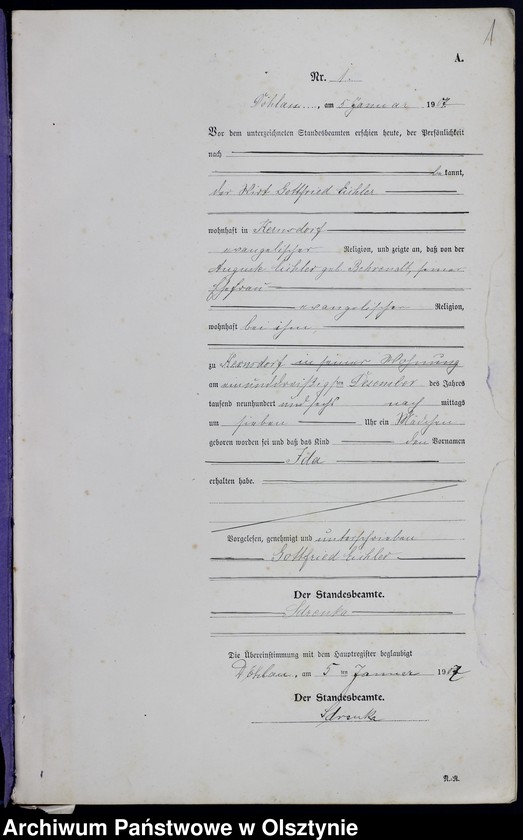 1
A.
Nr. 1.
Döhlau, am 5 Januar 1907
Vor dem unterzeichneten Standesbeamten erschien heute, der Persönlichkeit
nach
be kannt,
der Wirt Gottfried Eichler
wohnhaft in Kernsdorf
evangelischer Religion, und zeigte an, daß von der
Auguste Eichler geb. Behrendt, seiner
Ehefrau
evangelischer Religion,
wohnhaft bei ihm
zu Kernsdorf in seiner Wohnung
am einunddreißigsten Dezember des Jahres
tausend neunhundert und sechs nach mittags
um sieben Uhr ein Mädchen
geboren worden sei und daß das Kind den Vornamen
Ida
erhalten habe.
Vorgelesen, genehmigt und unterschrieben
Gottfried Eichler
Der Standesbeamte.
Die Übereinstimmung mit dem Hauptregister beglaubigt
Döhlau, am 5 ten Januar 1907
Der Standesbeamte.
N.-R.
Archiwum Państwowe w Olsztynie